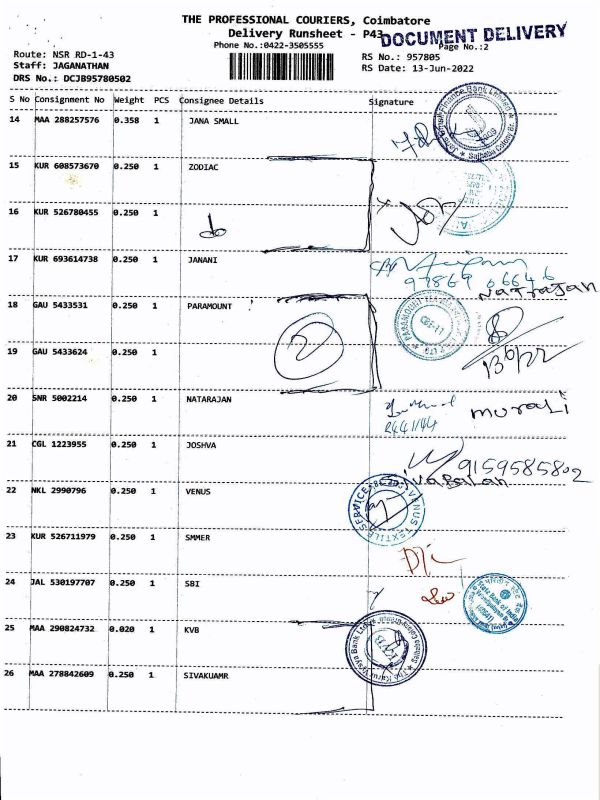 THE PROFESSIONAL COURIERS, Coimbatore
Delivery Runsheet - P43
DOCUMENT DELIVERY
Phone No.:0422-3505555
Page No.:2
Route: NSR RD-1-43
Staff: JAGANATHAN
DRS No.: DCJB95780502
RS No.: 957805
RS Date: 13-Jun-2022
S No Consignment No Weight PCS Consignee Details Signature
14 MAA 288257576 0.358 1 JANA SMALL
15 KUR 608573670 0.250 1 ZODIAC
16 KUR 526780455 0.250 1 do
17 KUR 693614738 0.250 1 JANANI
97869 06646
NATRAJAN
18 GAU 5433531 0.250 1 PARAMOUNT
CBE-11
2
13/6/22
19 GAU 5433624 0.250 1
20 SNR 5002214 0.250 1 NATARAJAN
MURALI
21 CGL 1223955 0.250 1 JOSHVA
9159585802
22 NKL 2990796 0.250 1 VENUS
VENUS TEXTILE SERVICES
23 KUR 526711979 0.250 1 SMMER
24 JAL 530197707 0.250 1 SBI
State Bank of India
25 MAA 290824732 0.020 1 KVB
The Karur Vysya Bank Ltd
KVB
26 MAA 278842609 0.250 1 SIVAKUAMR